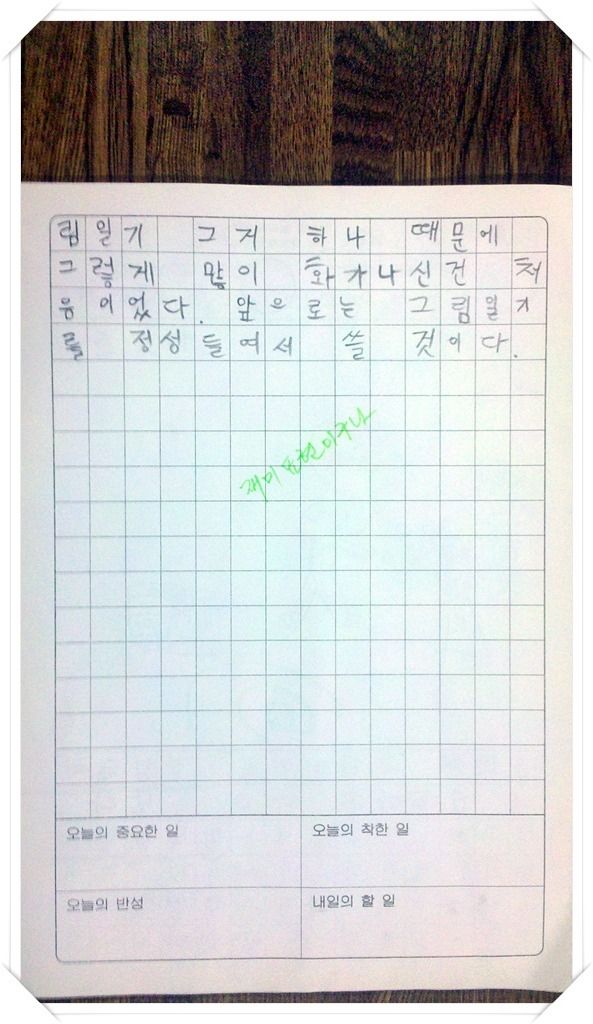 림일기 그거 하나 때문에
그렇게 많이 화가나신건 처
음이었다. 앞으로는 그림일기
를 정성들여서 쓸 것이다.
오늘의 중요한 일
오늘의 착한 일
오늘의 반성
내일의 할 일